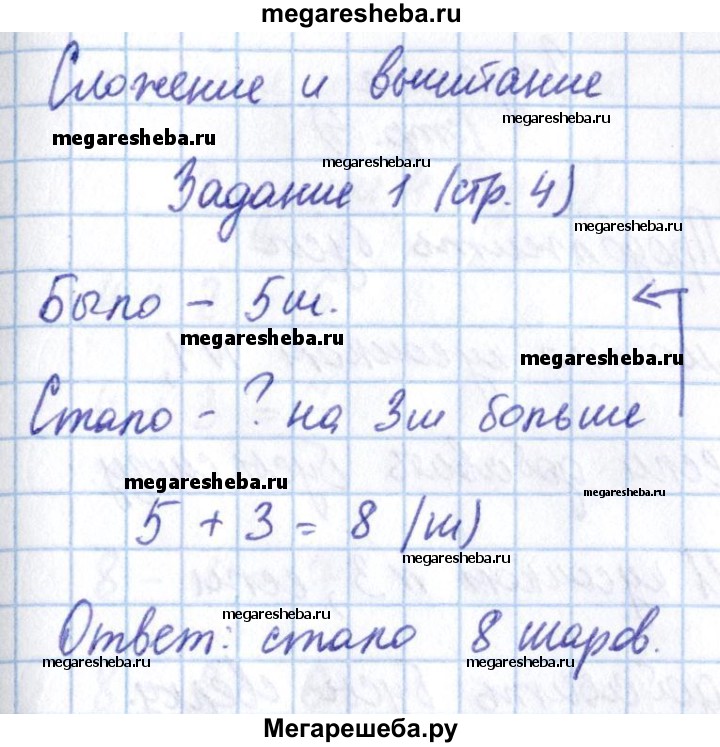 megaresheba.ru
Сложение и вычитание
megaresheba.ru
megaresheba.ru
megaresheba.ru
Задание 1 (стр. 4)
megaresheba.ru
Было – 5 ш.
megaresheba.ru
megaresheba.ru
Стало - ? на 3 ш больше
megaresheba.ru
megaresheba.ru
5 + 3 = 8 (ш)
megaresheba.ru
megaresheba.ru
Ответ: стало 8 шаров.
megaresheba.ru
megaresheba.ru
megaresheba.ru
Мегарешеба.ру